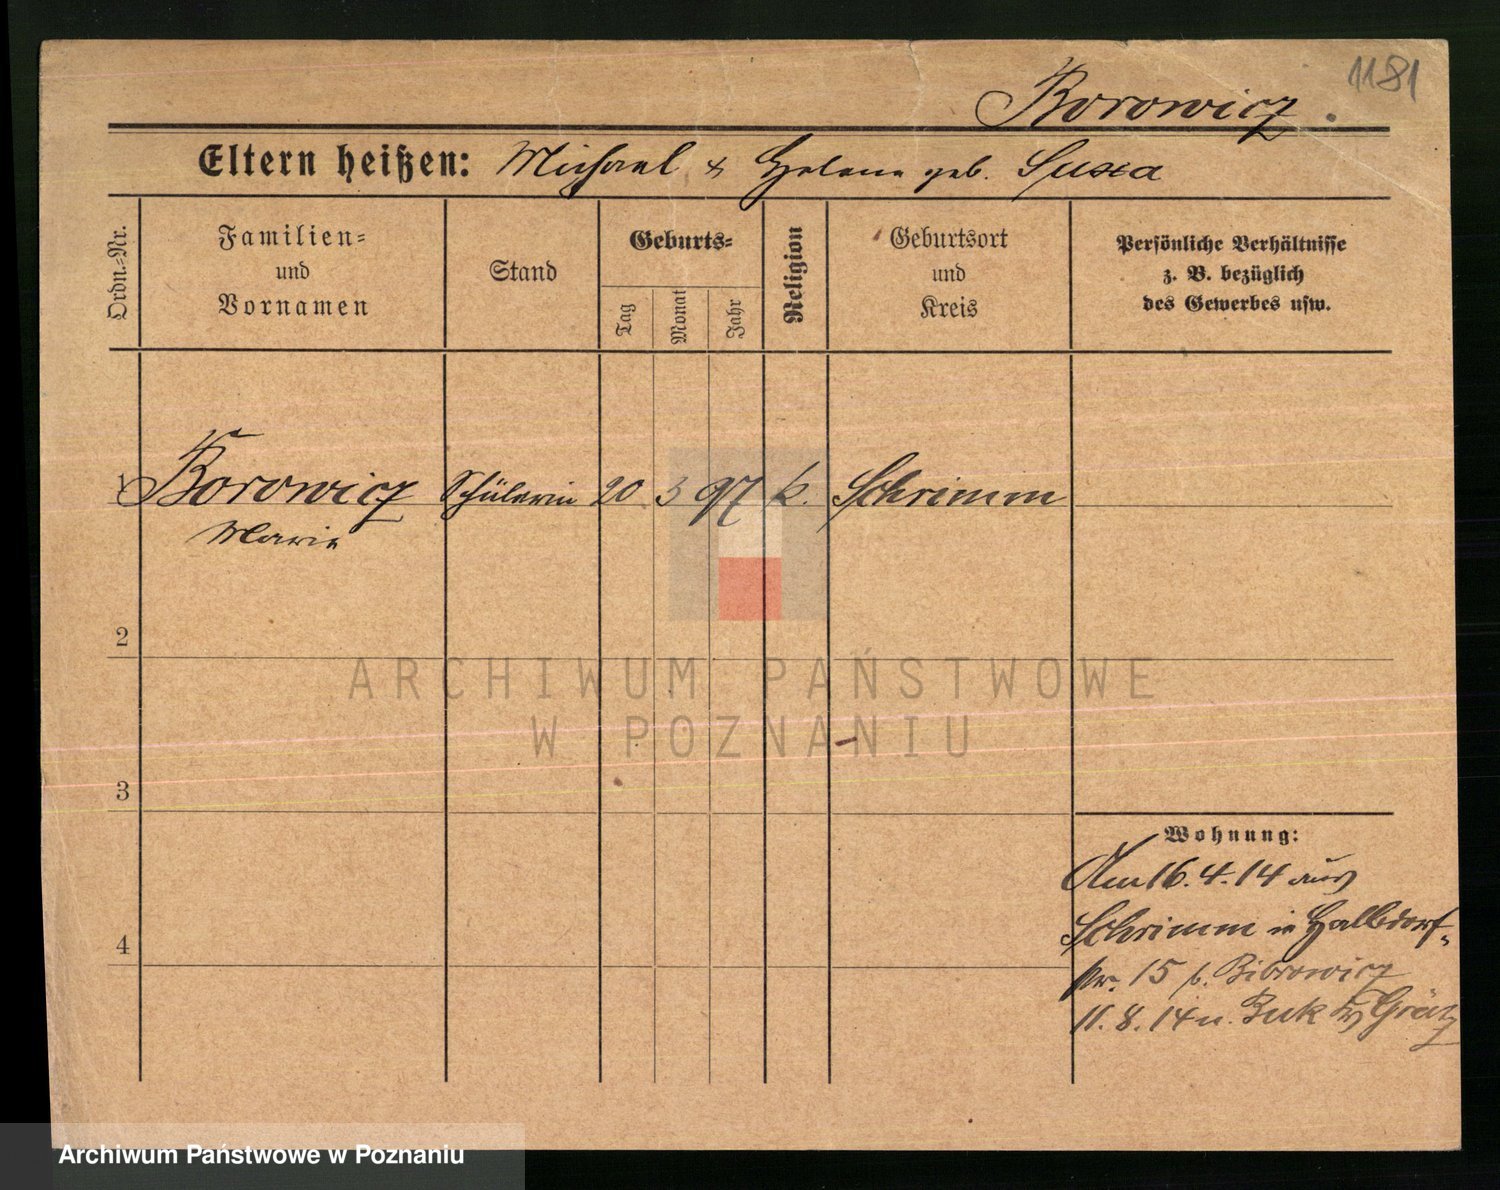 1181
Borowicz.
Eltern heißen: Michael & Helene geb. Susza
Ordn.-Nr.
Familien-
und
Vornamen
Stand
Geburts-
Tag
Monat
Jahr
Religion
Geburtsort
und
Kreis
Persönliche Verhältnisse
z. B. bezüglich
des Gewerbes usw.
1 Borowicz Schülerin 20 3 97 k. Schrimm
Marie
2
3
4
Wohnung:
Am 16.4.14 aus
Schrimm in Halbdorf-
str. 15 b.
11.8.14 n. Buk Grätz
ARCHIWUM PAŃSTWOWE
W POZNANIU
Archiwum Państwowe w Poznaniu